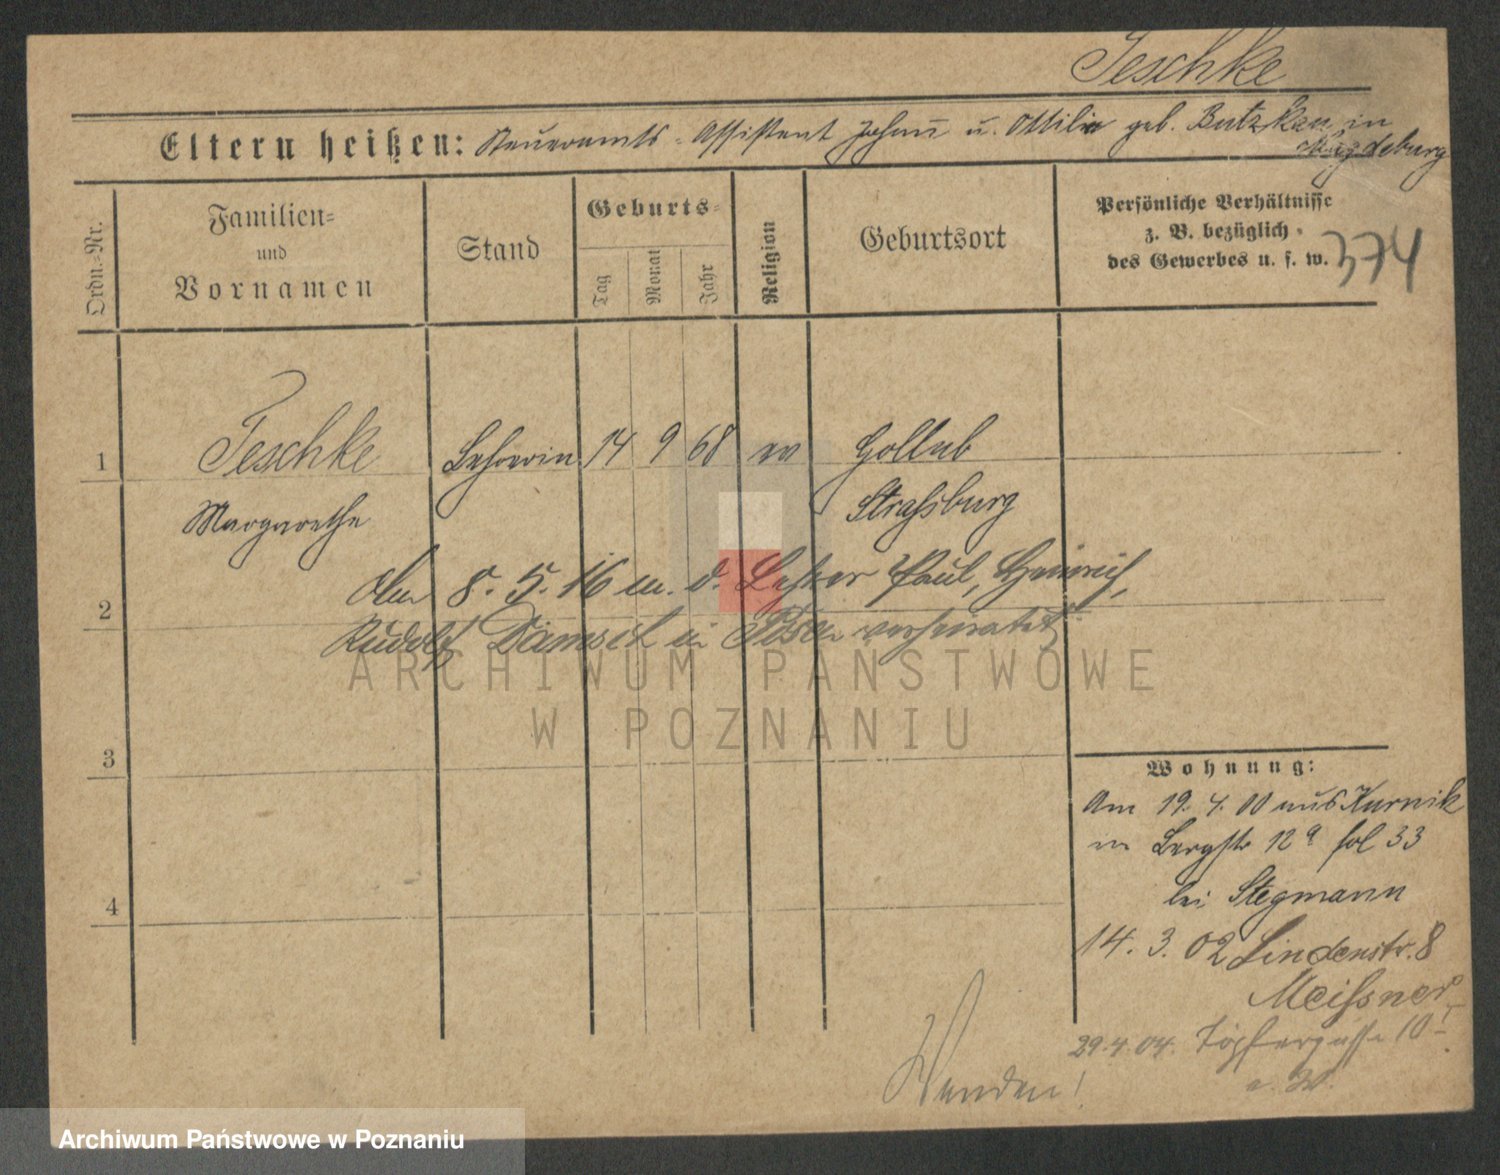 Jeschke
Eltern heißen: Steueramts-Assistent Johann u. Ottilie geb. Butzkau in
Magdeburg
Ordn.-Nr.
Familien-
und
Vornamen
Stand
Geburts-
Tag
Monat
Jahr
Religion
Geburtsort
Persönliche Verhältnisse
z. B. bezüglich
des Gewerbes u. s. w.
374
1
Jeschke
Lehrerin
14
9
68
ev
Gollub
Margarethe
Straßburg
Am 8. 5. 16 m. d. Lehrer Paul, Heinrich,
2
Rudolf in Posen verheiratet
ARCHIWUM PAŃSTWOWE
W POZNANIU
3
Wohnung:
Am 19. 4. 00 aus Kurnik
Bergstr 12a fol 33
4
bei Stegmann
14. 3. 02 Lindenstr. 8
Meißner
29.4.04. Töpfergasse 10 I
Wenden!
Archiwum Państwowe w Poznaniu